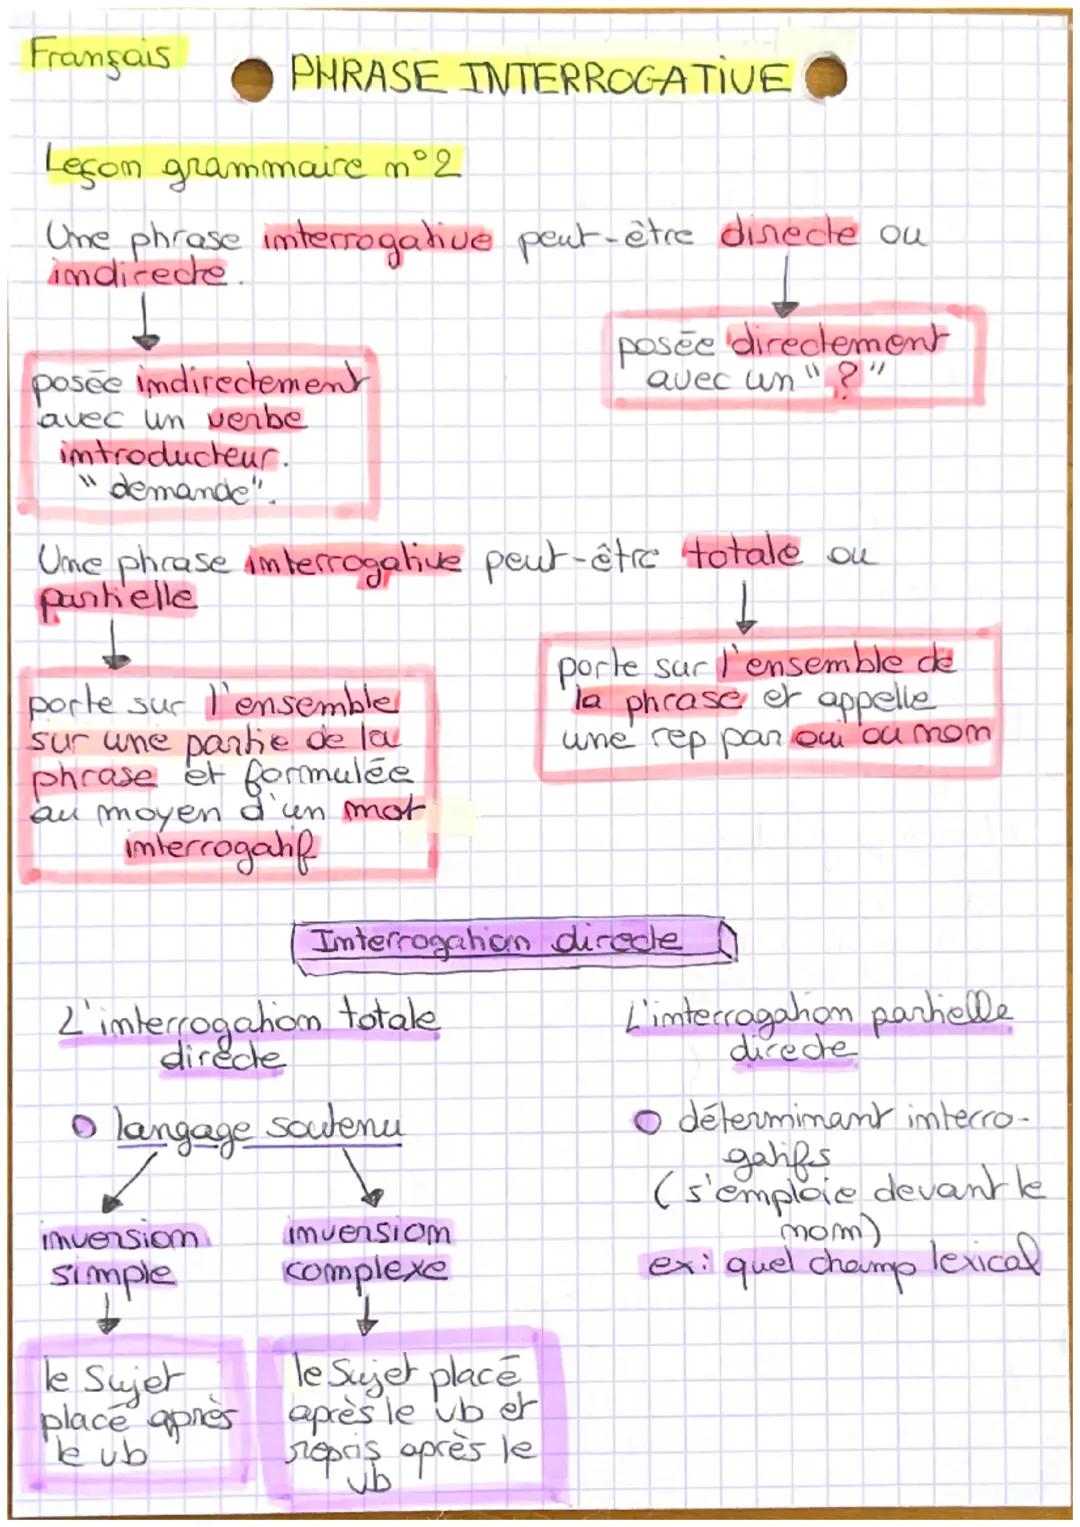 Français
PHRASE INTERROGATIVE
Leçon grammaire n°2
Une phrase interrogative peut-être directe ou
indirecte.
posée directement
avec un "?"
posée indirectement
avec un verbe
introducteur.
"demande".
Une phrase interrogative peut-être totale ou
partielle
porte sur l'ensemble de
la phrase et appelle
une rep par oui ou non
porte sur l'ensemble
sur une partie de la
phrase et formulée
au moyen d'un mot
interrogatif
Interrogation directe
L'interrogation totale
directe
langage soutenu
inversion
simple
le Sujet
placé après
le vb
inversion
complexe
le Sujet placé
après le vb et
repris après le
vb
L'interrogation partielle
directe
déterminant interro-
gatifs
(s'emploie devant le
nom)
ex: quel champ lexical